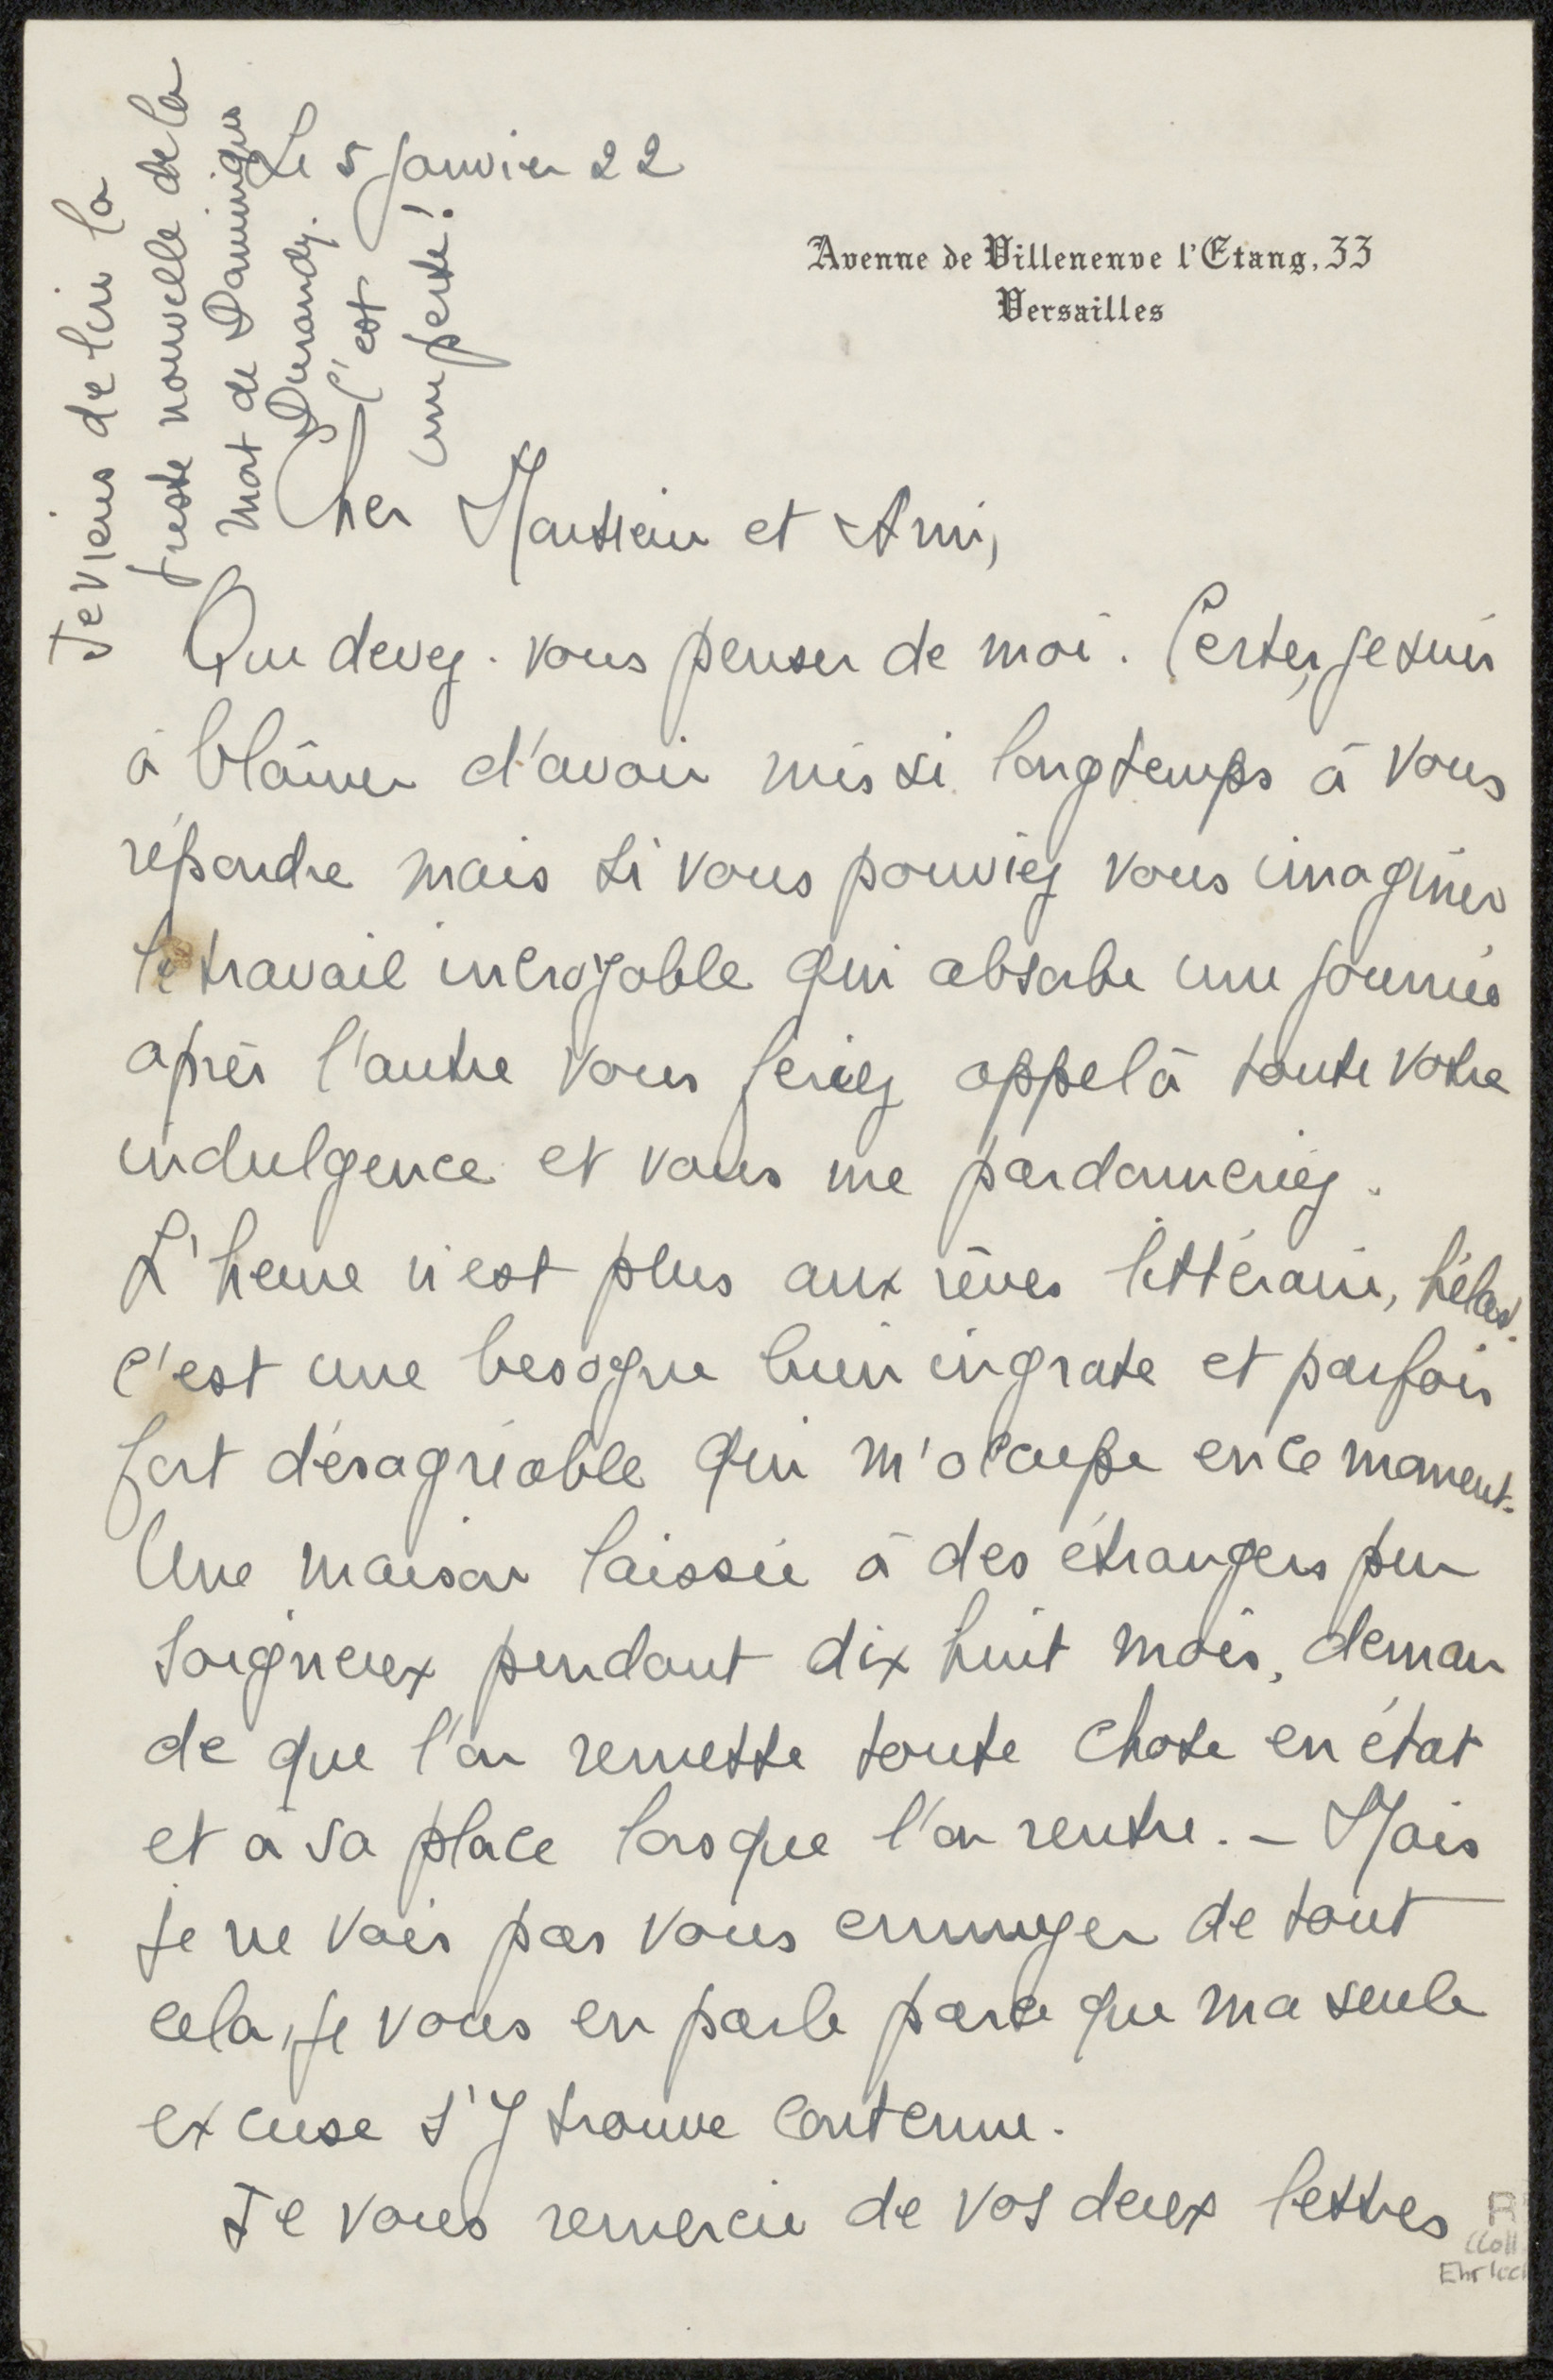 Le 5 Janvier 22
Avenue de Villeneuve l'Etang, 33
Versailles
Je viens de lire la
triste nouvelle de la
mort de Dominique
Durandy.
C'est
une perte!
Cher Monsieur et Ami,
Que devez-vous penser de moi. Certes, je suis
à blâmer d'avoir mis si longtemps à vous
répondre mais si vous pouviez vous imaginer
le travail incroyable qui absorbe une journée
après l'autre vous feriez appel à toute votre
indulgence et vous me pardonneriez.
L'heure n'est plus aux rêves littéraire, hélas!
c'est une besogne bien ingrate et parfois
fort désagréable qui m'occupe en ce moment.
Une maison laissée à des étrangers peu
soigneux pendant dix huit mois, deman
de que l'on remette toute chose en état
et à sa place lorsque l'on rentre. – Mais
je ne vais pas vous ennuyer de tout
cela, je vous en parle parce que ma seule
excuse s'y trouve contenue.
Je vous remercie de vos deux lettres
(Coll.